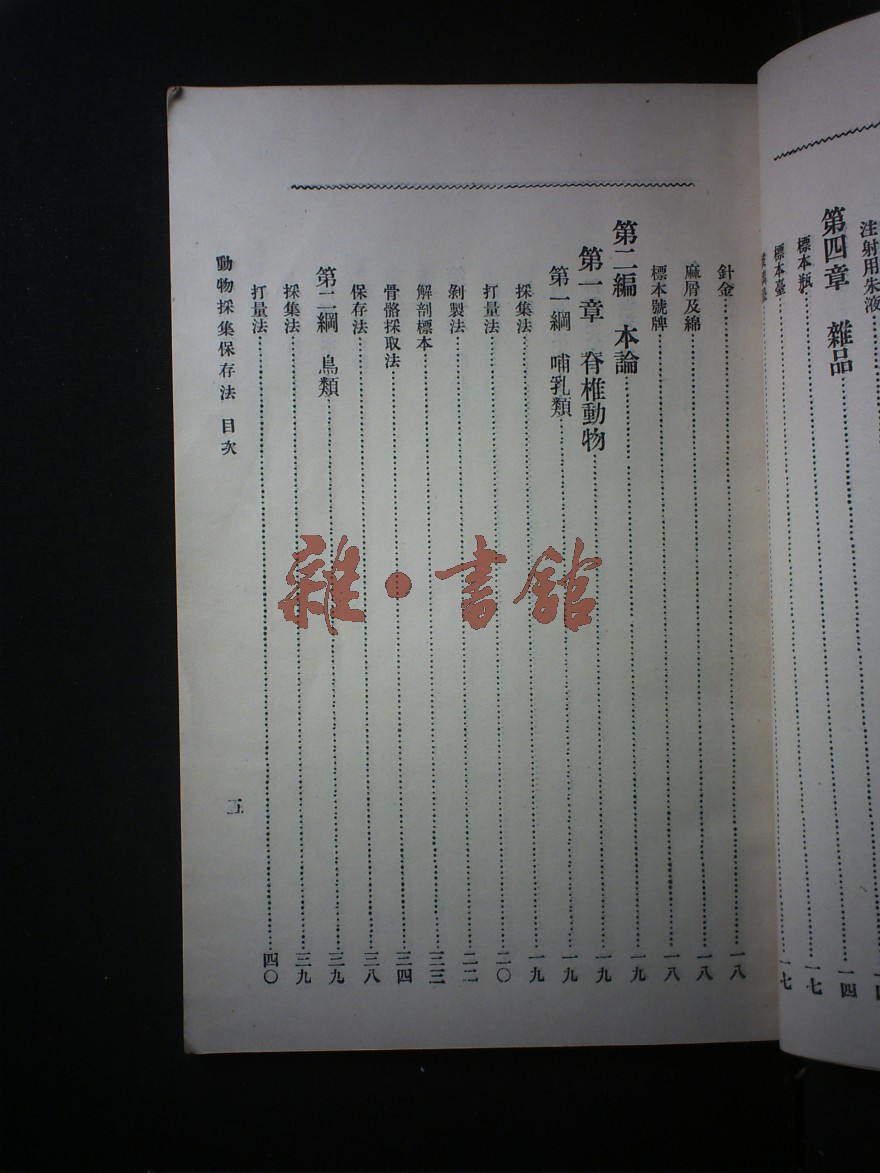 注射用朱液
第四章 雜品 一四
標本瓶 一七
標本臺 一七
針金 一八
麻屑及綿 一八
標本號牌 一八
第二編 本論 一九
第一章 脊椎動物 一九
第一綱 哺乳類 一九
採集法 一九
打量法 二〇
剝製法 二二
解剖標本 三三
骨骼採取法 三四
保存法 三八
第二綱 鳥類 三九
採集法 三九
打量法 四〇
動物採集保存法 目次
五
雜·書館